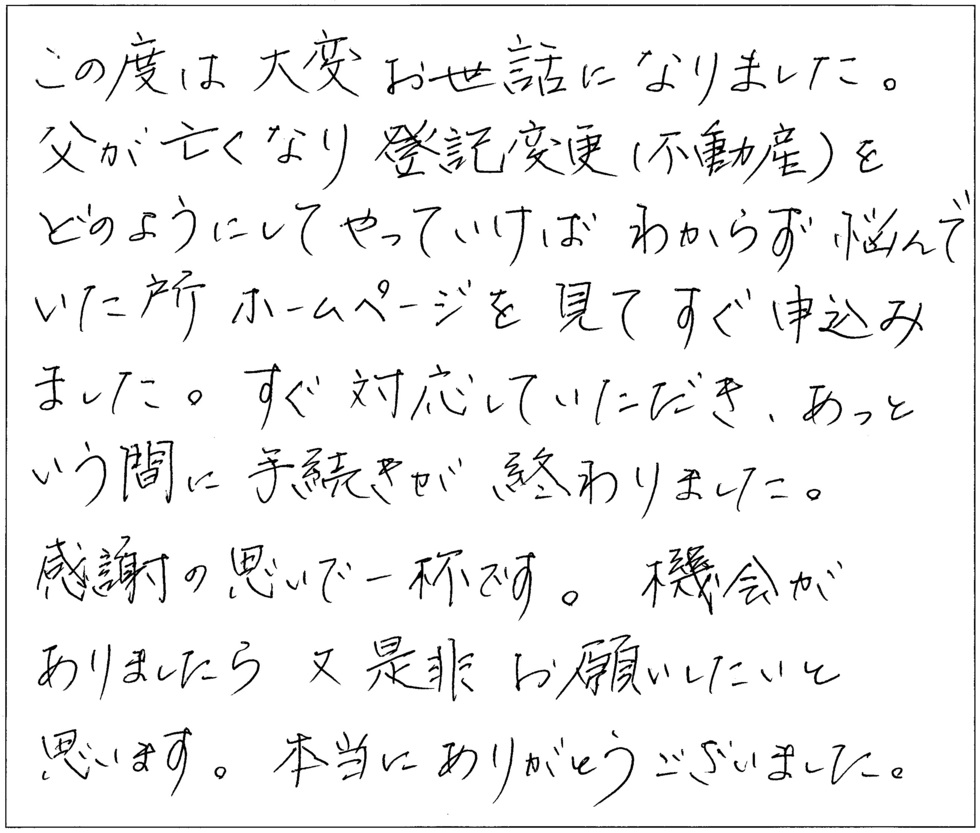 この度は大変お世話になりました。
父が亡くなり登記変更(不動産)を
どのようにしてやっていけばわからず悩んで
いた所ホームページを見てすぐ申込み
ました。すぐ対応していただき、あっと
いう間に手続きが終わりました。
感謝の思いで一杯です。機会が
ありましたら又是非お願いしたいと
思います。本当にありがとうございました。